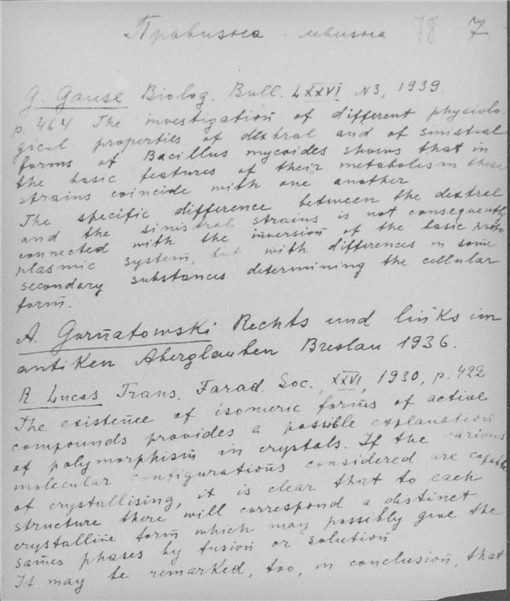 Правизна - левизна 78 7
G. Gause Biolog. Bull. LXXVI N3, 1939
p. 464 The investigation of different physiolo-
gical properties of dextral and of sinistral
forms of Bacillus mycoides shows that in
the basic features of their metabolism these
strains coincide with one another
The specific difference between the dextral
and the sinistral strains is not consequently
connected with the inversion of the basic proto
plasmic system, but with differences in some
secondary substances determining the cellular
form.
A. Gornatowski Rechts und links im
antiken Aberglauben Breslau 1936.
R Lucas Trans. Farad. Soc., XXVI, 1930, p. 422
The existence of isomeric forms of active
compounds provides a possible explanation
of polymorphism in crystals. If the various
molecular configurations considered are capable
of crystallising, it is clear that to each
structure there will correspond a distinct
crystalline form which may possibly give the
sames phases by fusion or solution
It may be remarked, too, in conclusion, that